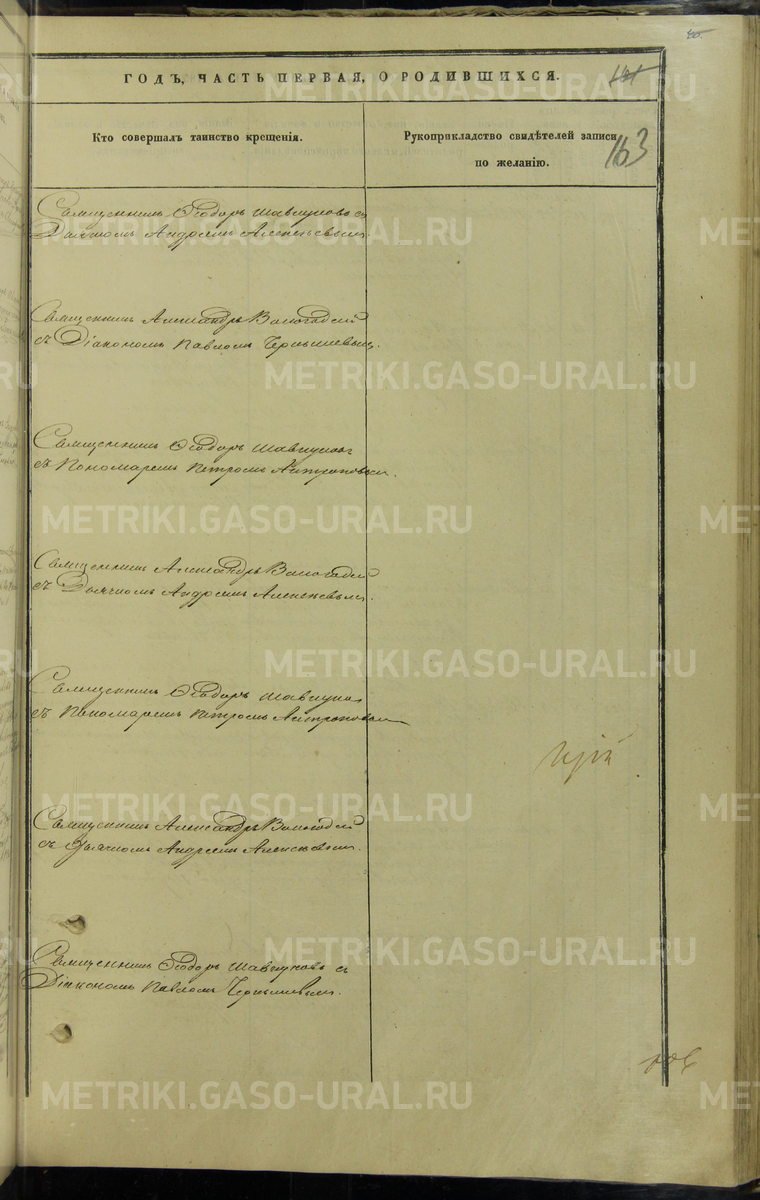 ГОДЪ, ЧАСТЬ ПЕРВАЯ, О РОДИВШИХСЯ.
101
163
Кто совершалъ таинство крещенія.
Рукоприкладство свидѣтелей записи
по желанію.
Священникъ Ѳеодоръ Шавкуновъ съ
Дьячкомъ Андреемъ Алексѣевымъ.
Священникъ Александръ Вологодскій
съ Діакономъ Павломъ Чернышевымъ.
Священникъ Ѳеодоръ
съ Пономаремъ Петромъ Антроповымъ.
Священникъ Александръ Вологодскій
съ Дьячкомъ Андреемъ Алексѣевымъ.
Священникъ Ѳеодоръ
съ Пономаремъ Петромъ Антроповымъ
Священникъ Александръ Вологодскій
съ Дьячкомъ Андреемъ Алексѣевымъ.
Священникъ Ѳеодоръ Шавкуновъ съ
Діакономъ Павломъ Чернышевымъ.
METRIKI.GASO-URAL.RU